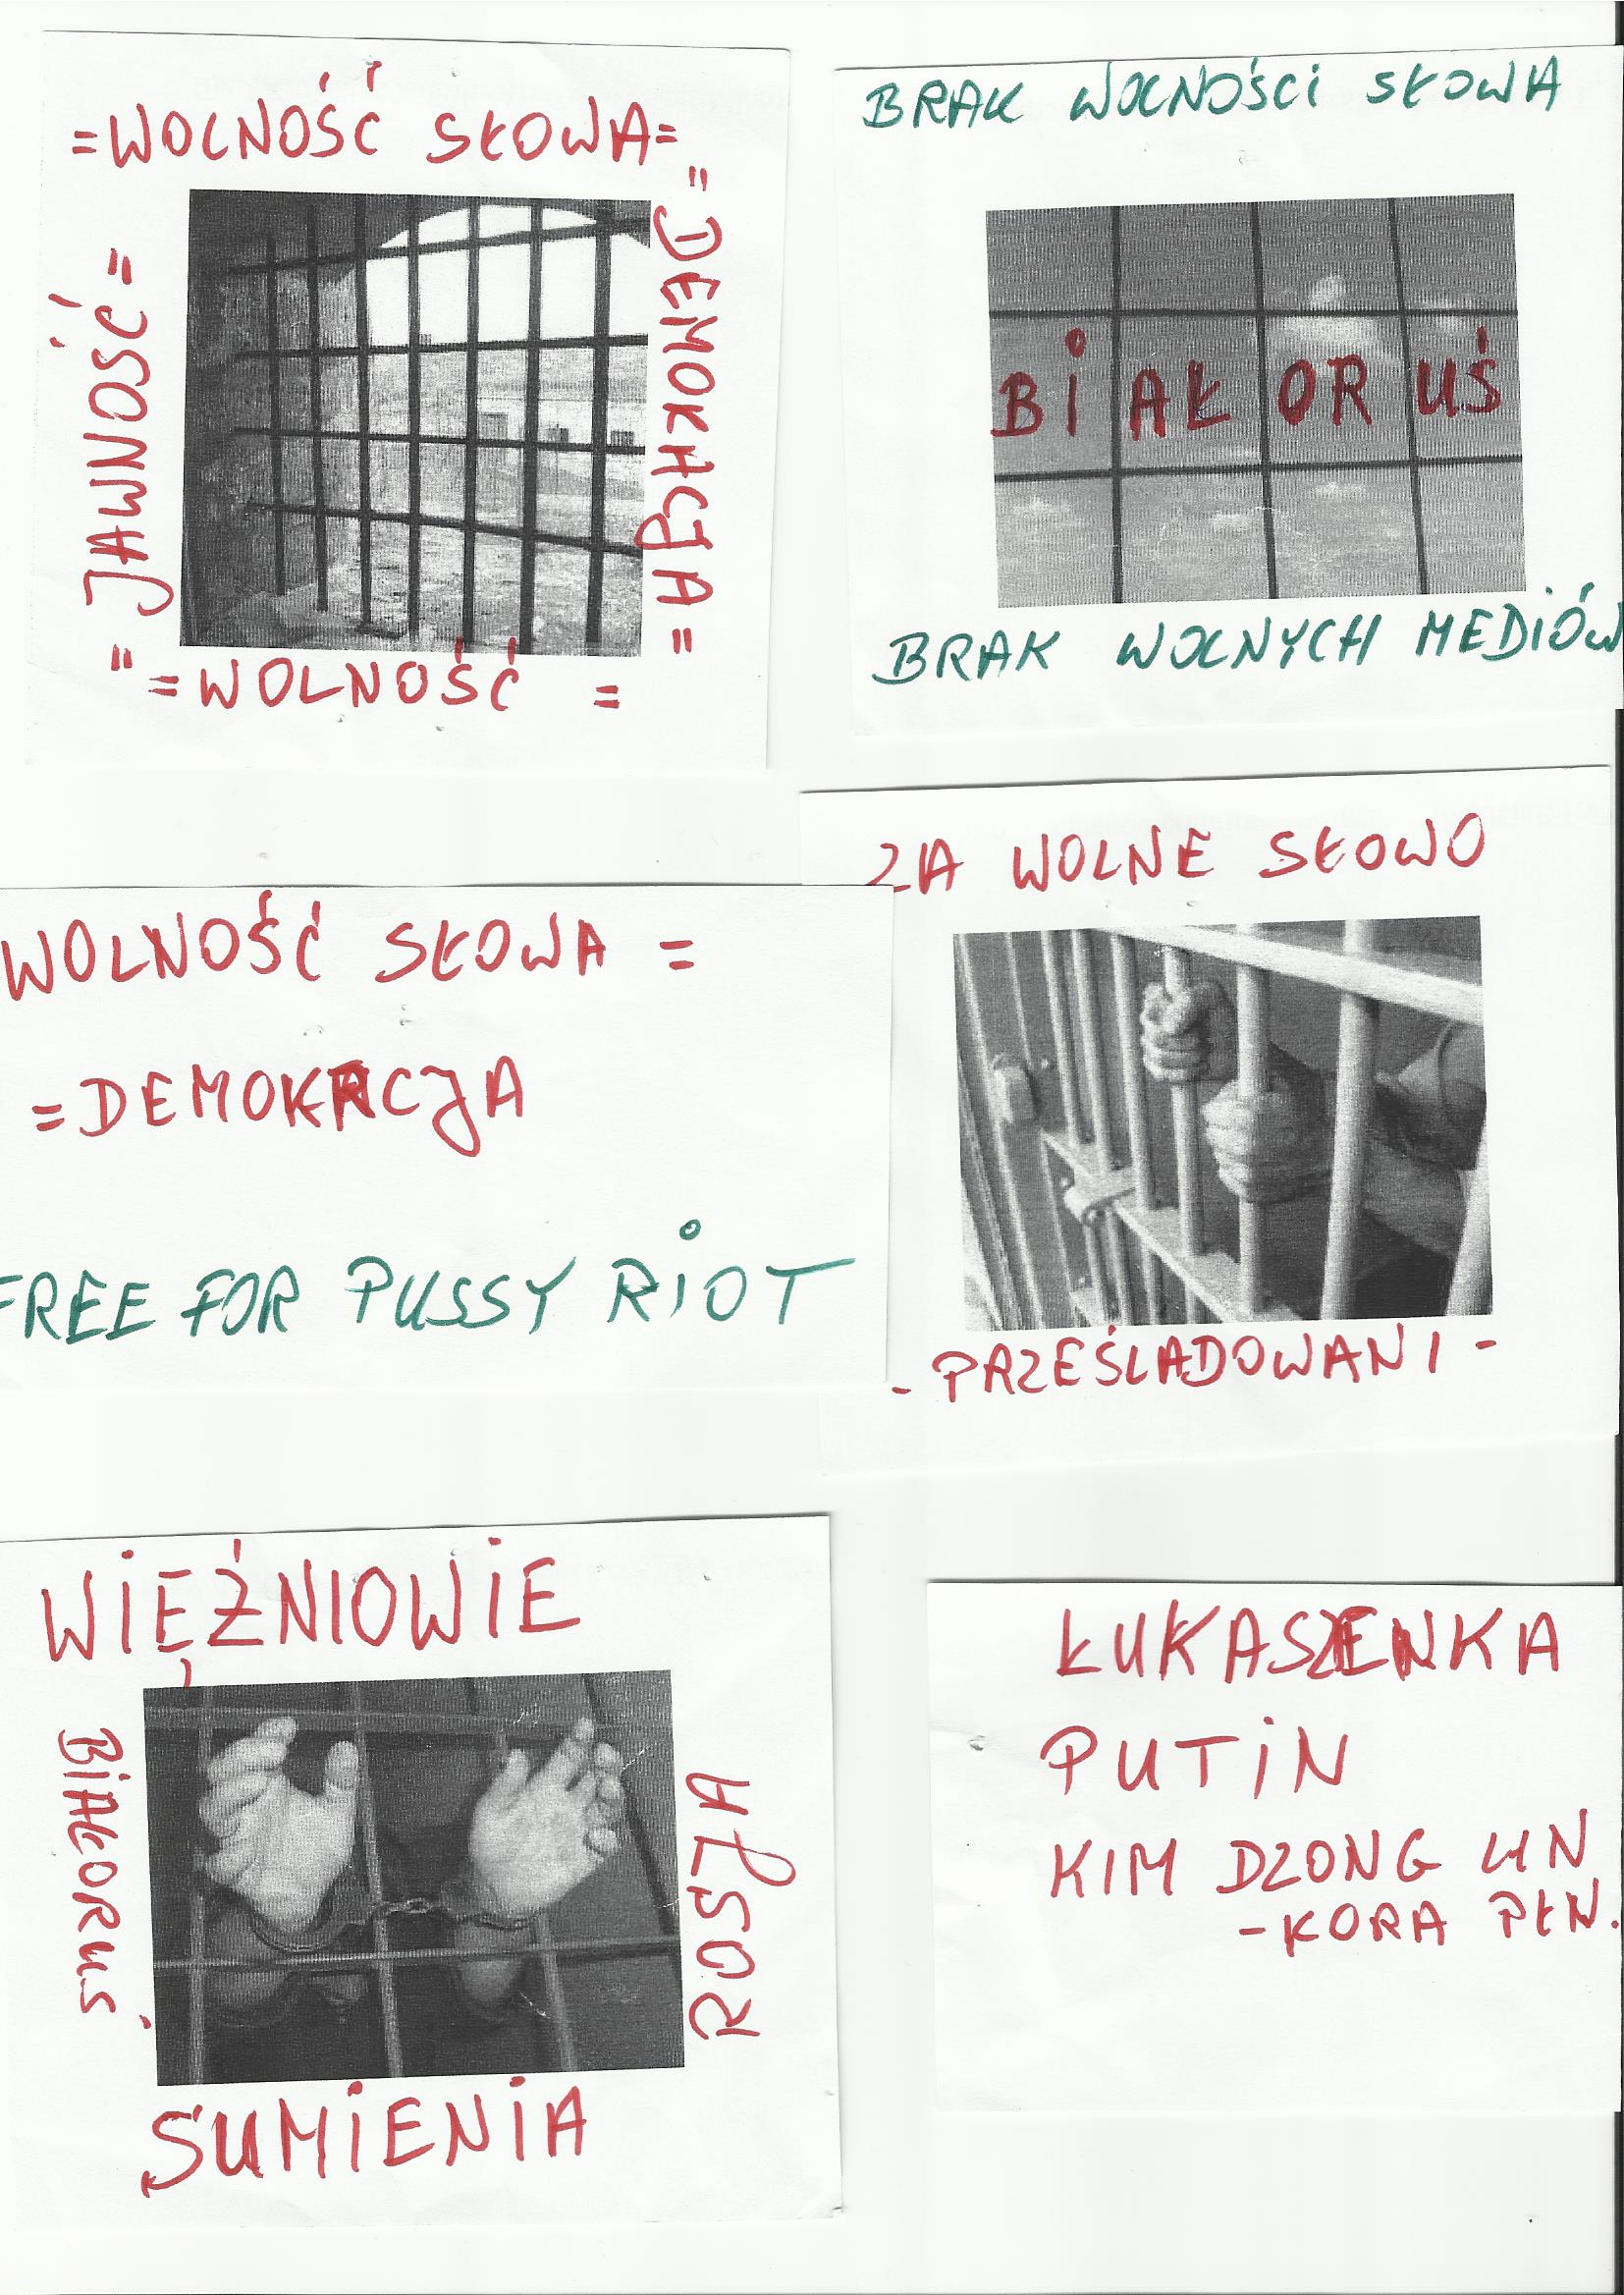 =WOLNOŚĆ SŁOWA=
= JAWNOŚĆ =
= DEMOKRACJA =
=WOLNOŚĆ =
BRAK WOLNOŚCI SŁOWA
BIAŁORUŚ
BRAK WOLNYCH MEDIÓW
WOLNOŚĆ SŁOWA =
=DEMOKRACJA
FREE FOR PUSSY RIOT
ZA WOLNE SŁOWO
- PRZEŚLADOWANI -
WIĘŹNIOWIE
BIAŁORUŚ
ROSJA
SUMIENIA
ŁUKASZENKA
PUTIN
KIM DZONG UN
-KORA PŁN.